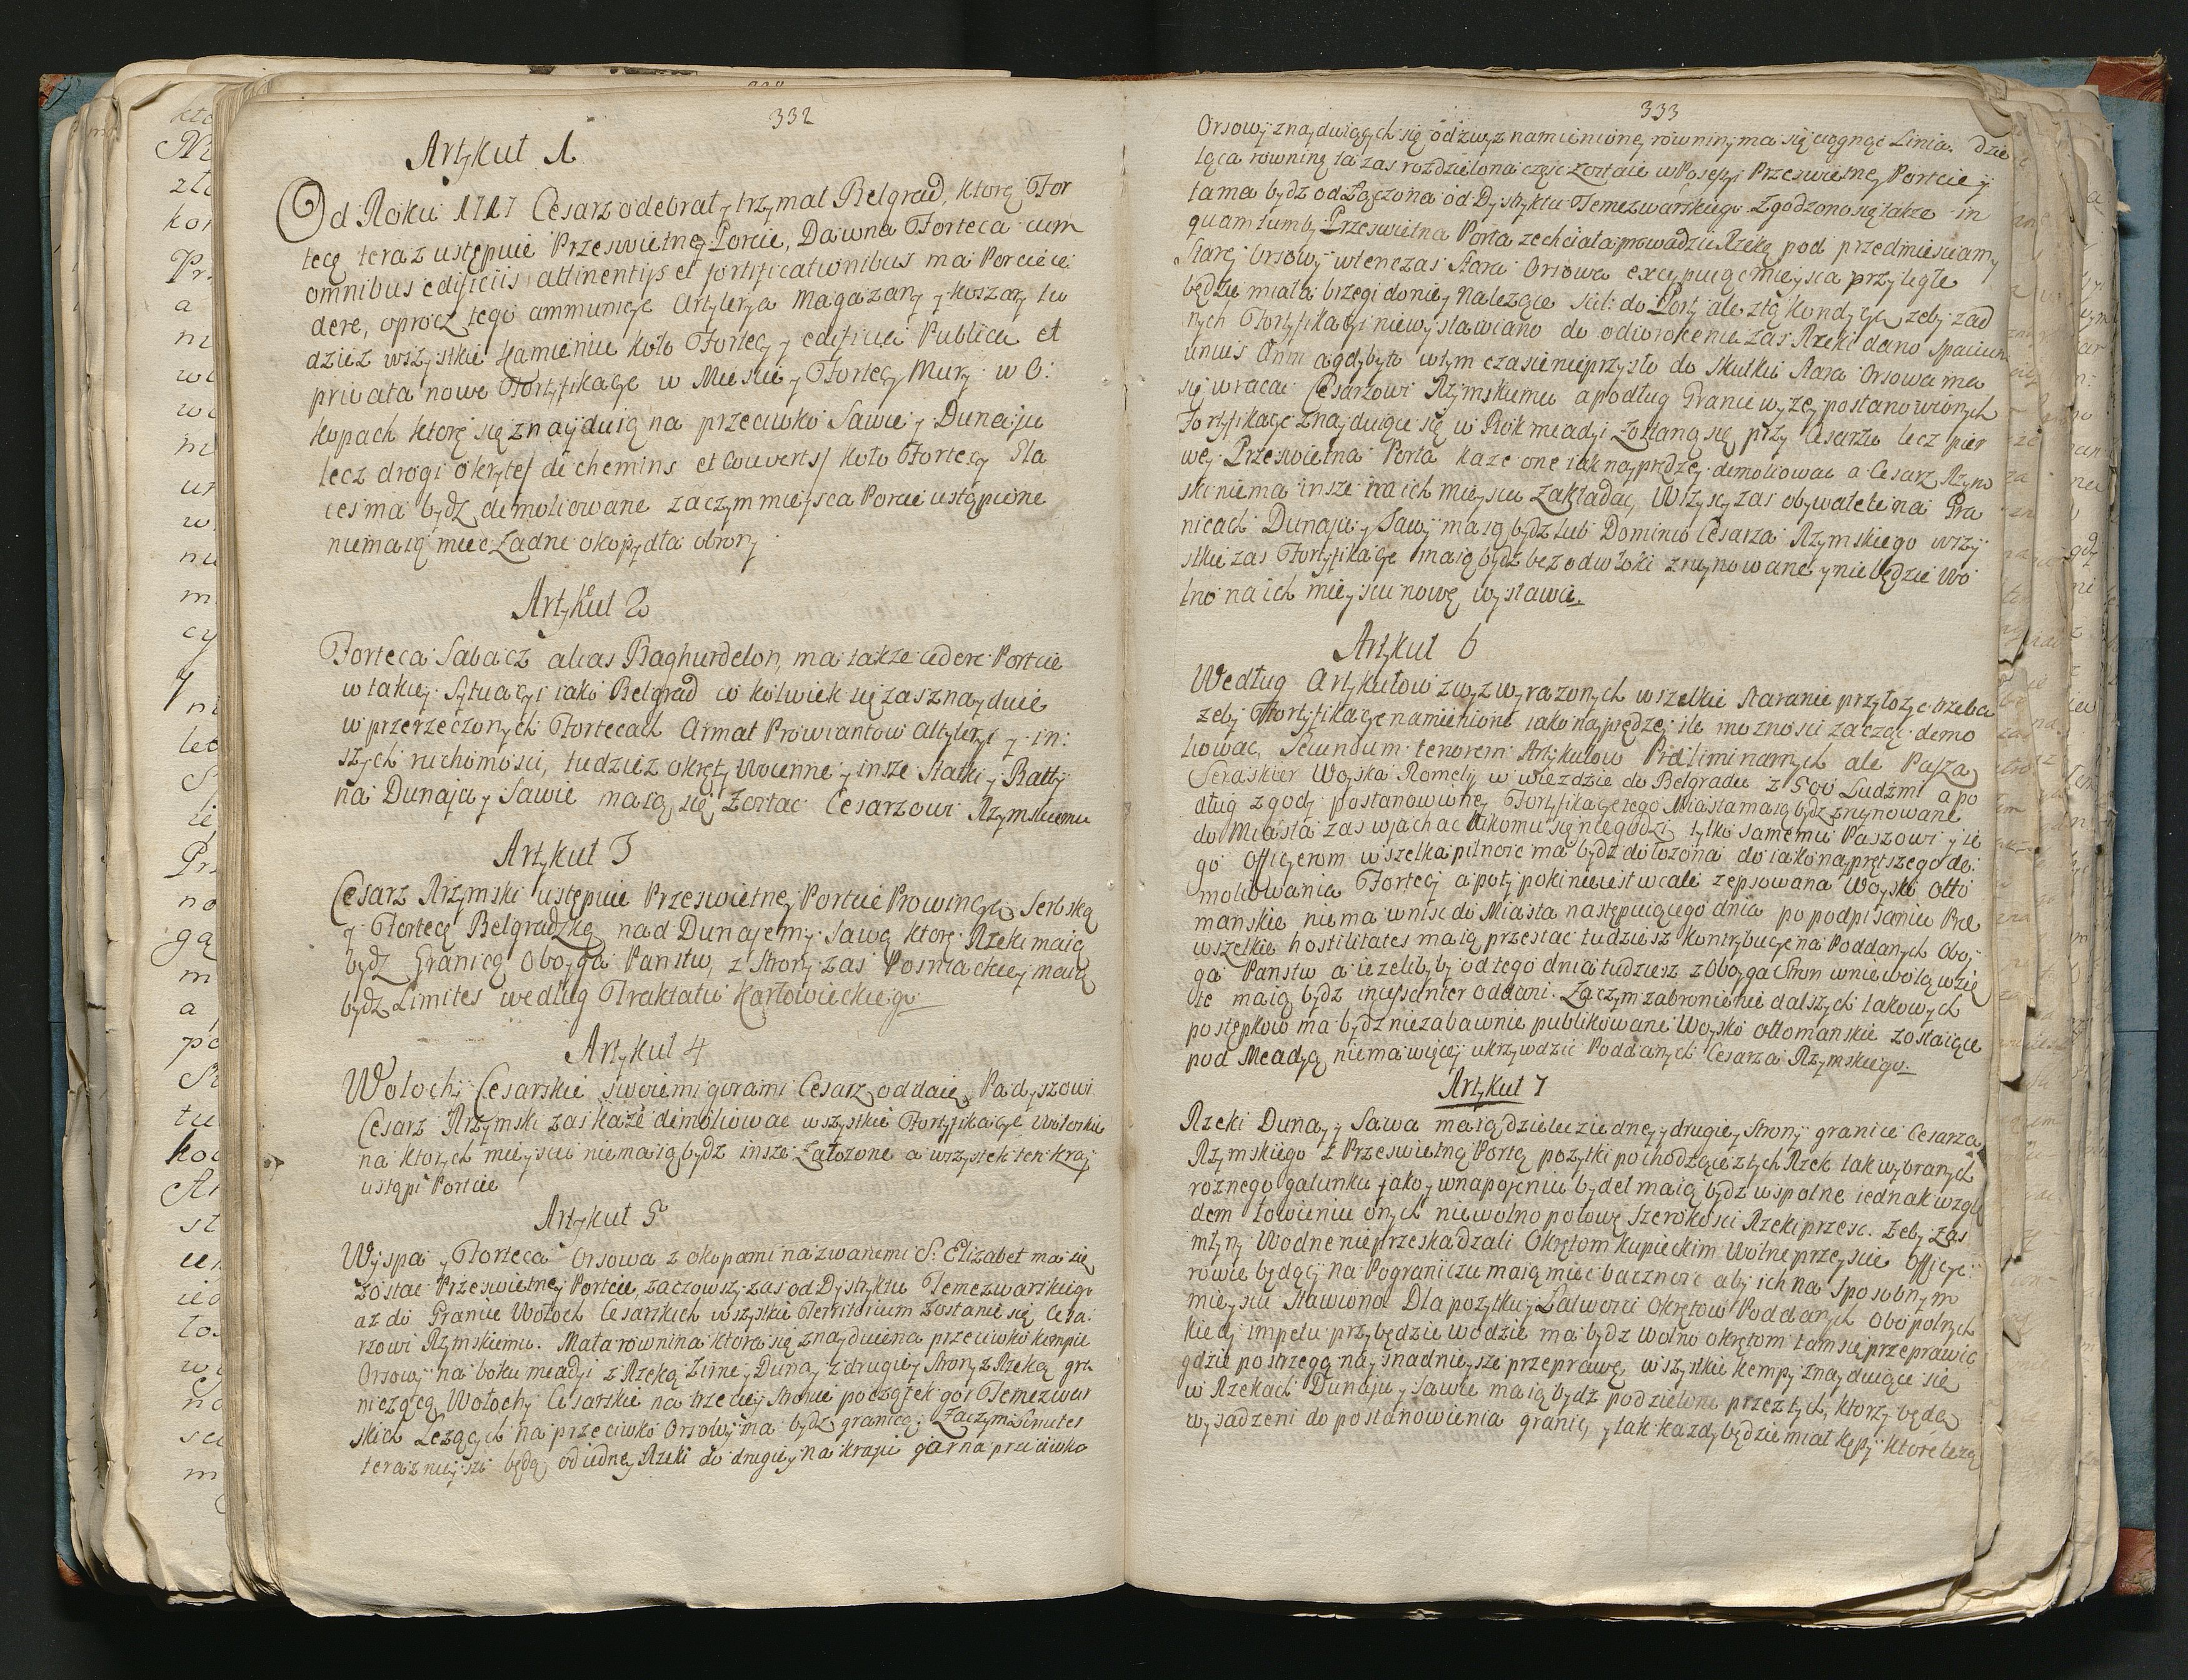 332
Artykuł 1
Od Roku 1717 Cesarz odebrał y trzymał Belgrad, ktorę For
tecę teraz ustępuie Przeswietney Porcie, Dawna Forteca cum
omnibus edificiis attinentijs et fortificationibus ma Porcie ce
dere, oprocz tego ammunicye Artylerya Magazany y koszary tu
dziesz wszystkie Kamienie koło Fortecy y edificia Publica et
privata nowe Fortyfikacye w Miescie y Fortecy Mury w O:
kopach ktore się znayduią na przeciwko Sawie y Dunaju
lecz drogi okryte/ de chemins et couverts/ koło Fortecy Gla
ces ma bydz demoliowane zaczym mieysca Porcie ustąpione
niemaią miec Zadne okopy dla obrony
Artykuł 2
Forteca Sabacz alias Baghurdelon, ma takze cedere Portcie
w takiey Sytuacyi iako Belgrad co kolwiek się zas znayduie
w przerzeczonych Fortecach Armat Prowiantow Altyleryi y in:
szych ruchomosci, tudziez okręty woienne y insze statki y Batty
na Dunaju y Sawie maią się Zostac Cesarzowi Rzymskiemu
Artykuł 3
Cesarz Rzymski ustępuie Przeswietney Portcie Prowincyą Serbską
y Fortecę Belgradzką nad Dunajem y Sawą ktore Rzeki maią
bydz Granicą oboyga Panstw, z strony zas Bosniackiey maią
bydz Limites według Traktatu Karłowieckiego
Artykuł 4
Wołochy Cesarskie swoiemi gorami Cesarz oddaie Padyszowi
Cesarz Rzymski zas każe demoliowac wszystkie Fortyfikacye Wołoskie
na ktorych mieyscu niemaią bydz insze Załozone a wszystek ten kray
ustąpi Portcie
Artykuł 5
Wyspa y Forteca Orsowa z okopami nazwanemi S. Elizabet ma się
zostac Przeswietney Portcie, zaczowszy zas od Dystryktu Temezwarskiego
az do Granic Wołoch Cesarskich wszystkie Territorium zostanie się Cesa:
rzowi Rzymskiemu. Mała rownina ktora się znayduie na przeciwko kempie
Orsowy na boku meadyi z Rzeką Zimey Dunay z drugiey Strony z Rzeką gra
niczącą Wołochy Cesarskie na trzeciey stronie początek gor Temezwar
skich Lezących na przeciwko Orsowy ma bydz granicą. Zaczym Limites
teraznieysze będą od iedney Rzeki do drugiey na kraju gor na przeciwko
333
Orsowy znayduiących się odzwyz namienioney rowniny ma się ciągnąc Linia. Dzie
ląca rowninę ta zas rozdzielona częsc Zostaie w Posesyi Przeswietney Portcie y
ta ma bydz odłączona od Dystryktu Temezwarskiego. Zgodzono się takze in
quantum by Przeswietna Porta zechciała prowadzic Rzekę pod przedmiesciamy
Starey Orsowy wtenczas stara Orsowa excypuiąc mieysca przyległe
będzie miała brzegi do niey Nalezące scil: do Porty ale z tą kondycyą zeby zad
nych Fortyfikacyi niewystawiano do odwrocenia zas Rzeki dano spacium
unius Anni a gdyby to w tym czasie nieprzyszło do skutku stara Orsowa ma
się wracac Cesarzowi Rzymskiemu a podług Granic wyzey postanowionych
Fortyfikacye znayduiące się w Rok meadyi zostaną się przy Cesarzu lecz pier
wey Przeswietna Porta kaze one iak nayprdzey demoliowac a Cesarz Rzym
ski niema insze na ich mieyscu zakładac, Wszyscy zas obywatele na Gra
nicach Dunaju y Sawy maią bydz sub Dominio Cesarza Rzymskiego wszy
stkie zas Fortyfikacye maią bydz bez odwłoki zruynowane y nie będzie wo
lno na ich mieyscu nowe wystawic
Artykuł 6
Według Artykułow zwyz wyrazonych wszelkie staranie przyłozyc trzeba
zeby Fortyfikacye namienione iako nayprędzey ile moznosci zacząc demo
liowac, Secundum tenorem Artykułow Praeliminarnych ale Pasza
Seraskier Woyska Romelij w wiezdzie do Belgradu z 500 Ludzmi a po
dług zgody postanowioney Fortyfikacye tego Miasta maią bydz zruynowane
do Miasta zas wjachac nikomu się niegodzi tylko samemu Paszowi y ie
go Officyerom wszelka pilnosc ma bydz dołozona do iako nayprętszego de:
moliowania Fortecy a poty poki nieiest wcale zepsowana Woysko Otto
manskie niema wnisc do Miasta następuiącego dnia po podpisaniu Pre
wszelkie hostilitates maią przestac tudziesz kontrybucye na Poddanych oboy
ga Panstw a iezeliby od tego dnia tudziesz z oboyga Stron w niewolą wzię
te maią bydz incessanter oddani. Zaczym zabronienie dalszych takowych
postępkow ma bydz niezabawnie publikowane Woysko ottomanskie zostaiące
pod Meadyą niema więcey ukrzywdzic Poddanych Cesarza Rzymskiego.
Artykuł 7
Rzeki Dunay y Sawa maią dzielic z iedney y drugiey Strony granice Cesarza
Rzymskiego z Przeswietną Portą pozytki pochodzące z tych Rzek tak w rybranych
roznego gatunku jako y w napojeniu bydeł maią bydz wspolne iednak wzglę
dem łowieniu onych niewolno połowę Szerokosci Rzeki przesc. Zeby zas
młyny Wodne nieprzeskadzali Okrętom kupieckim Wolne przeyscie Officye:
rowie będący na Pograniczu maią miec bacznosc aby ich na Sposobnym
mieyscu stawiono Dla pozytku y Łatwosci Okrętow Poddanych obopolnych
kiedy impetu przybędzie wodzie ma bydz wolno okrętom tam się przeprawic
gdzie postrzegą naysnadnieysze przeprawę wszystkie kempy znayduiące się
w Rzekach Dunaju y Sawie maią bydz podzielone przez tych, ktorzy będą
wysadzeni do postanowienia granic, y tak kazdy będzie miał kępy ktore lezą